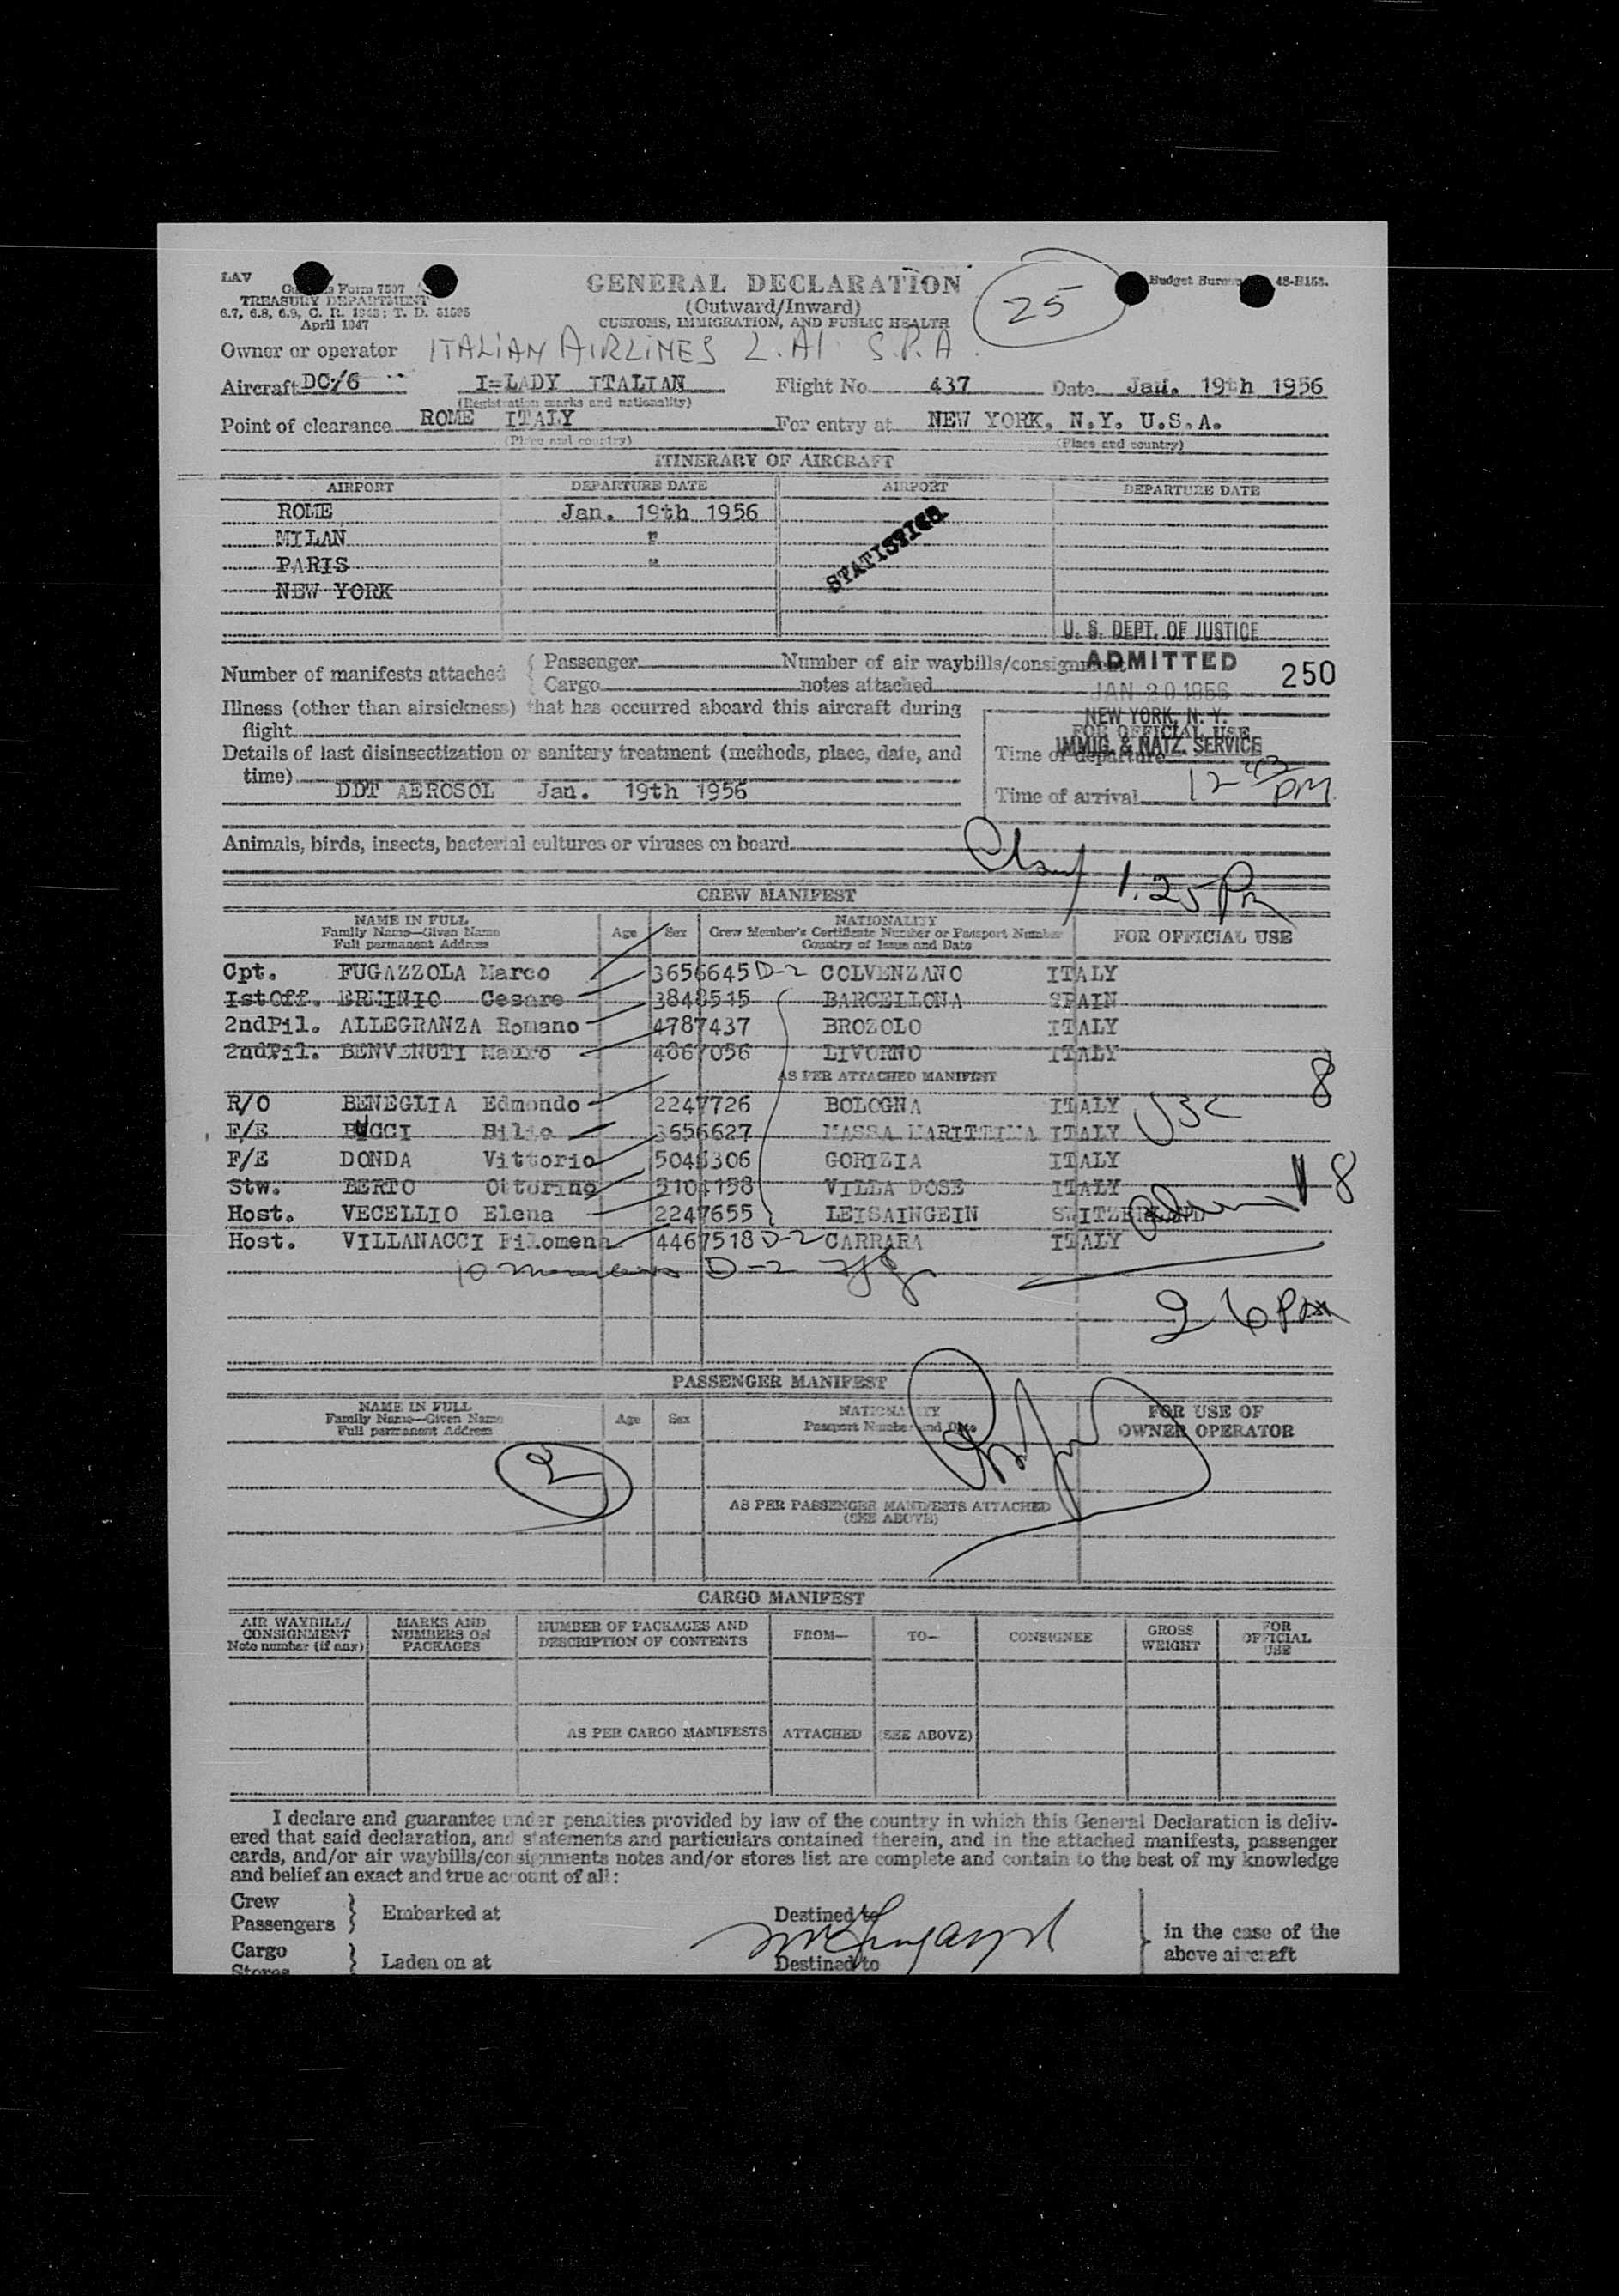 LAV
Form 7507
TREASURY DEPARTMENT
6.7, 6.8, 6.9, C. R. 1943; T. D. 51595
April 1947
GENERAL DECLARATION
(Outward/Inward)
CUSTOMS, IMMIGRATION, AND PUBLIC HEALTH
25
Budget Bureau 48-R153.
Owner or operator ITALIAN AIRLINES L.A.I. S.P.A.
Aircraft DC/6 I=LADY ITALIAN Flight No. 437 Date Jan. 19th 1956
(Registration marks and nationality)
Point of clearance ROME ITALY For entry at NEW YORK, N.Y. U.S.A.
(Place and country) (Place and country)
ITINERARY OF AIRCRAFT
AIRPORT DEPARTURE DATE AIRPORT DEPARTURE DATE
ROME Jan. 19th 1956
MILAN "
PARIS "
NEW YORK
STATISTICS
U. S. DEPT. OF JUSTICE
ADMITTED
JAN 20 1956
NEW YORK, N. Y.
IMMIG. & NATZ. SERVICE
250
Number of manifests attached { Passenger Number of air waybills/consignment
Cargo notes attached
Illness (other than airsickness) that has occurred aboard this aircraft during
flight
FOR OFFICIAL USE
Details of last disinsectization or sanitary treatment (methods, place, date, and
time) DDT AEROSOL Jan. 19th 1956
Time of departure
Time of arrival 12 43 PM
Animals, birds, insects, bacterial cultures or viruses on board
1:25 Pm
CREW MANIFEST
NAME IN FULL
Family Name—Given Name
Full permanent Address
Age Sex
NATIONALITY
Crew Member's Certificate Number or Passport Number
Country of Issue and Date
FOR OFFICIAL USE
Cpt. FUGAZZOLA Marco 3656645 D-2 COLVENZANO ITALY
IstOff. ERMINIO Cesare 3848515 BARCELLONA SPAIN
2ndPil. ALLEGRANZA Romano 4787437 BROZOLO ITALY
2ndPil. BENVENUTI Mauro 4867056 LIVORNO ITALY
AS PER ATTACHED MANIFEST
8
R/O BENEGLIA Edmondo 2247726 BOLOGNA ITALY
USC
F/E BUCCI Hilio 3656627 MASSA MARITTIMA ITALY
F/E DONDA Vittorio 5045306 GORIZIA ITALY
8
Stw. BERTO Ottorino 5104158 VILLA DOSE ITALY
Host. VECELLIO Elena 2247655 LEISAINGEIN SWITZERLAND
Host. VILLANACCI Filomena 4467518 D-2 CARRARA ITALY
10 members D-2
2 16 PM
PASSENGER MANIFEST
NAME IN FULL
Family Name—Given Name
Full permanent Address
Age Sex
NATIONALITY
Passport Number and Date
FOR USE OF
OWNER OPERATOR
2
AS PER PASSENGER MANIFESTS ATTACHED
(SEE ABOVE)
CARGO MANIFEST
AIR WAYBILL/
CONSIGNMENT
Note number (if any)
MARKS AND
NUMBERS ON
PACKAGES
NUMBER OF PACKAGES AND
DESCRIPTION OF CONTENTS
FROM—
TO—
CONSIGNEE
GROSS
WEIGHT
FOR
OFFICIAL
USE
AS PER CARGO MANIFESTS ATTACHED (SEE ABOVE)
I declare and guarantee under penalties provided by law of the country in which this General Declaration is deliv-
ered that said declaration, and statements and particulars contained therein, and in the attached manifests, passenger
cards, and/or air waybills/consignments notes and/or stores list are complete and contain to the best of my knowledge
and belief an exact and true account of all:
Crew
Passengers } Embarked at Destined to
in the case of the
above aircraft
Cargo
Stores } Laden on at Destined to